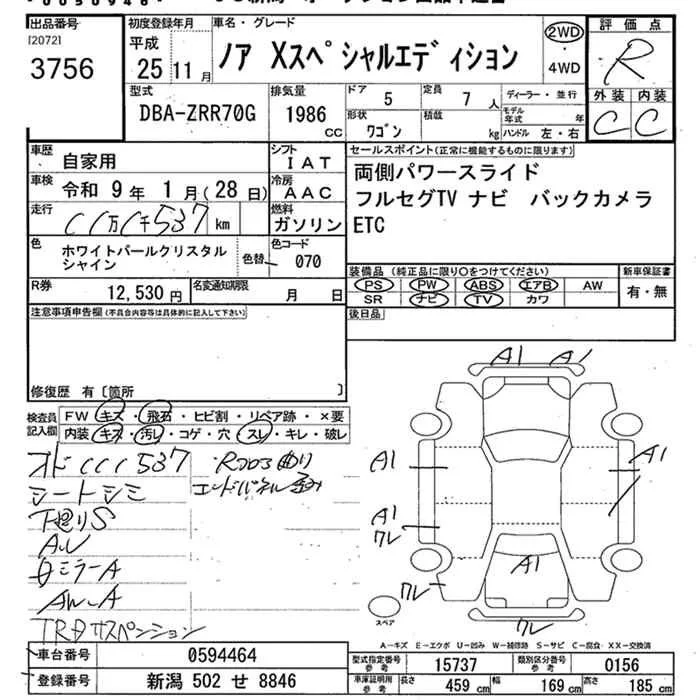 出品番号
[2072]
3756
初度登録年月
平成
25 11月
車名・グレード
ノア Xスペシャルエディション
2WD
・
4WD
評価点
R
外装 内装
C C
型式
DBA-ZRR70G
排気量
1986
cc
ドア
5
定員
7 人
ディーラー・並行
形状
ワゴン
積載
kg
モデル年式
年
ハンドル 左・右
車歴
自家用
シフト
IAT
車検
令和 9年 1月(28日)
冷房
AAC
走行
111537
km
燃料
ガソリン
色
ホワイトパールクリスタル
シャイン
色替
色コード
070
R券
12,530 円
名変通知期限
月 日
セールスポイント(正常に機能するものに限ります)
両側パワースライド
フルセグTV ナビ バックカメラ
ETC
装備品(純正品に限り○をつけてください)
PS PW ABS エアB AW
SR ナビ TV カワ
新車保証書
有・無
後日品
注意事項申告欄(不具合内容等は具体的に記入して下さい)
修復歴 有〔箇所 〕
検査員
記入欄
FW キズ・飛石・ヒビ割・リペア跡・×要
内装 キズ・汚レ・コゲ・穴・スレ・キレ・破レ
オドCCC537
シートシミ
下廻りS
AW
ミラーA
AW-A
TRDサスペンション
Rフロア曲り
エンドパネル歪み
A1 A1
A1
A1
A1
ワレ
A1
ワレ
ワレ
スペア
A-キズ E-エクボ U-凹み W-補修跡 S-サビ C-腐食 XX-交換済
車台番号
0594464
登録番号
新潟 502 せ 8846
型式指定番号
参考
15737
類別区分番号
参考
0156
車庫証明用
参考
長さ
459 cm
幅
169 cm
高さ
185 cm